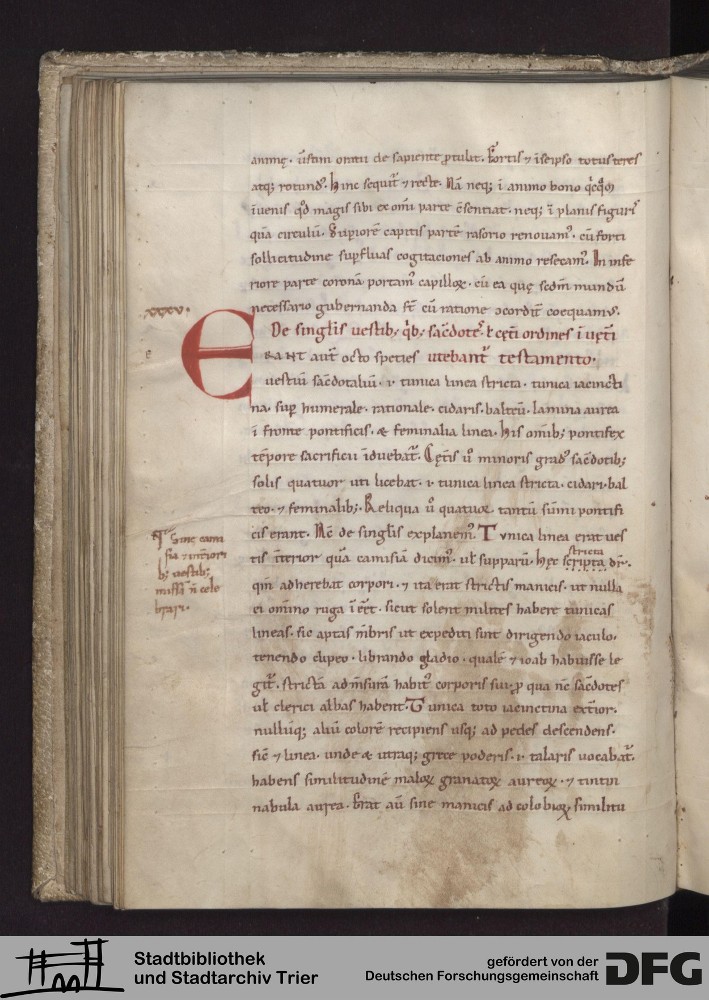 animę. ...tim ... de sapiente ptulit. Fortis & ī seipso totus teres
atq; rotund'. Hinc sequit' & recte. Nā neq; ī animo bono ...
ī uenis qd magis sibi ex omi parte c̄sentiat. neq; ī planis figuris
quā circulū. Supiorē capitis partē rasorio renouam'. cū forti
sollicitudine supfluas cogitationes ab animo resecam'. In infe
riore parte coronā portam' capilloꝝ. cū ea quę scdm mundū
necessario gubernanda st cū ratione ... coequamus.
XXXV.
De singlis uestib; qb; sacdotes ł cęti ordines ī uęti
utebant' testamento.
ERANT aut' octo species
uestiū sacdotaliū. i. tunica linea stricta. tunica iacincti
na. sup humerale. rationale. cidaris. balteū. lamina aurea
ī fronte pontificis. & feminalia linea. His omib; pontifex
tēpore sacrificii induebat'. Cętis ů minoris grad' sacdotib;
solis quatuor uti licebat. i. tunica linea stricta. cidari. bal
teo. & feminalib;. Reliqua ů quatuor tantū sūmi pontifi
cis erant. Nc̄ de singlis explanem'. Tunica linea erat ues
tis īterior quā camisiā dicim'. ul supparū. hęc scripta dr.
stricta
qm adherebat corpori. & ita erat strictis manicis. ut nulla
ei omino ruga īeēt. sicut solent milites habere tunicas
lineas. sic aptas mbris ut expediti sint dirigendo iaculo.
tenendo clipeo. librando gladio. qualē & ioab habuisse le
git'. strictā ad msurā habit' corporis sui. p qua nc sacdotes
ul clerici albas habent. Tunica toto iacinctina extior.
nullūq; aliū colorē recipiens usq; ad pedes descendens.
sic & linea. unde & utraq; grece poderis. i. talaris uocabat'.
habens similitudinē maloꝝ granatoꝝ aureoꝝ. & tintin
nabula aurea. Erat aū sine manicis ad colobioꝝ similitu
Sine cami
sia & intiori
b; uestib;
missā n̄ cele
brari.
e
Stadtbibliothek
und Stadtarchiv Trier
gefördert von der
Deutschen Forschungsgemeinschaft
DFG